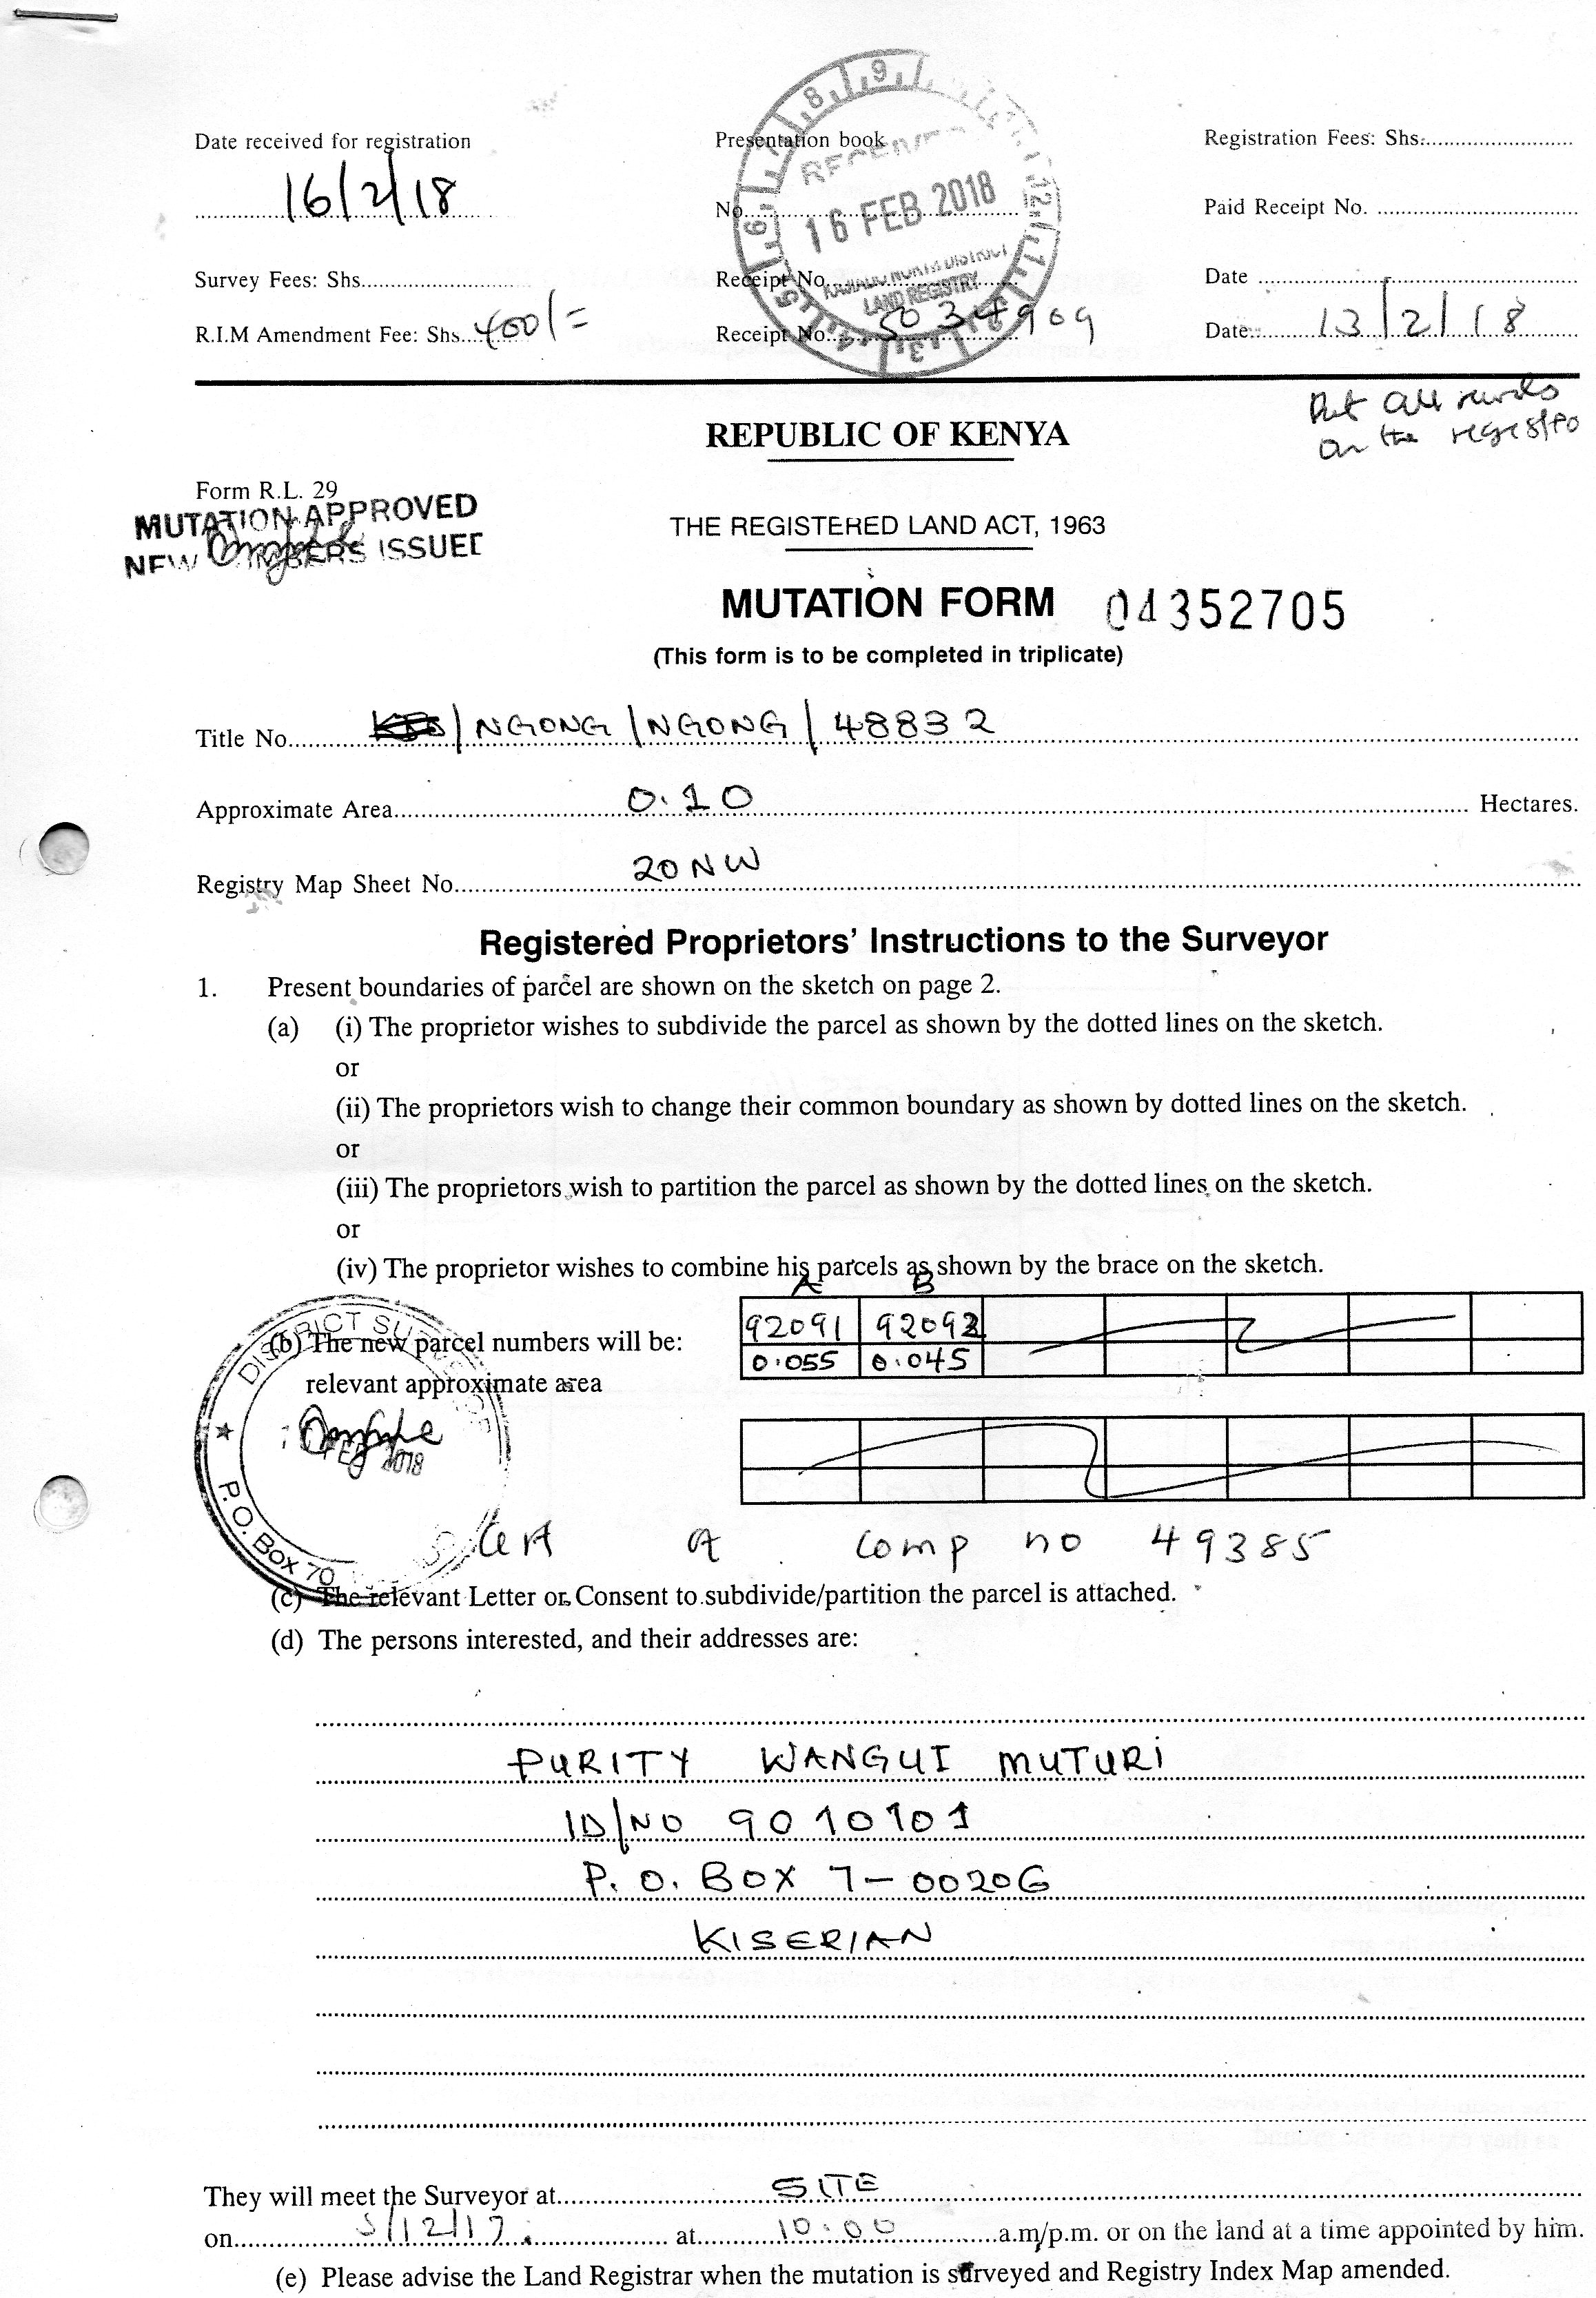 Date received for registration
16/2/18
Presentation book
No.
Registration Fees: Shs.
Paid Receipt No.
RECEIVED
16 FEB 2018
KAJIADO NORTH DISTRICT
LAND REGISTRY
6 7 8 9 12 1 2 3 4 5 6
Survey Fees: Shs.
Receipt No.
Date
R.I.M Amendment Fee: Shs. 400/=
Receipt No. 5034909
Date: 13/2/18
Put all
on the
REPUBLIC OF KENYA
Form R.L. 29
MUTATION APPROVED
NEW NUMBERS ISSUED
THE REGISTERED LAND ACT, 1963
MUTATION FORM 04352705
(This form is to be completed in triplicate)
Title No. /NGONG/NGONG/48832
Approximate Area 0.10 Hectares.
Registry Map Sheet No. 20NW
Registered Proprietors' Instructions to the Surveyor
1. Present boundaries of parcel are shown on the sketch on page 2.
(a) (i) The proprietor wishes to subdivide the parcel as shown by the dotted lines on the sketch.
or
(ii) The proprietors wish to change their common boundary as shown by dotted lines on the sketch.
or
(iii) The proprietors wish to partition the parcel as shown by the dotted lines on the sketch.
or
(iv) The proprietor wishes to combine his parcels as shown by the brace on the sketch.
A B
(b) The new parcel numbers will be: 92091 92092
relevant approximate area 0.055 0.045
DISTRICT SURVEYOR
FEB 2018
P.O. Box 70
Comp no 49385
(c) The relevant Letter or Consent to subdivide/partition the parcel is attached.
(d) The persons interested, and their addresses are:
PURITY WANGUI MUTURI
ID/NO 9010101
P. O. BOX 7-00206
KISERIAN
They will meet the Surveyor at SITE
on 5/12/17. at 10:00 a.m/p.m. or on the land at a time appointed by him.
(e) Please advise the Land Registrar when the mutation is surveyed and Registry Index Map amended.